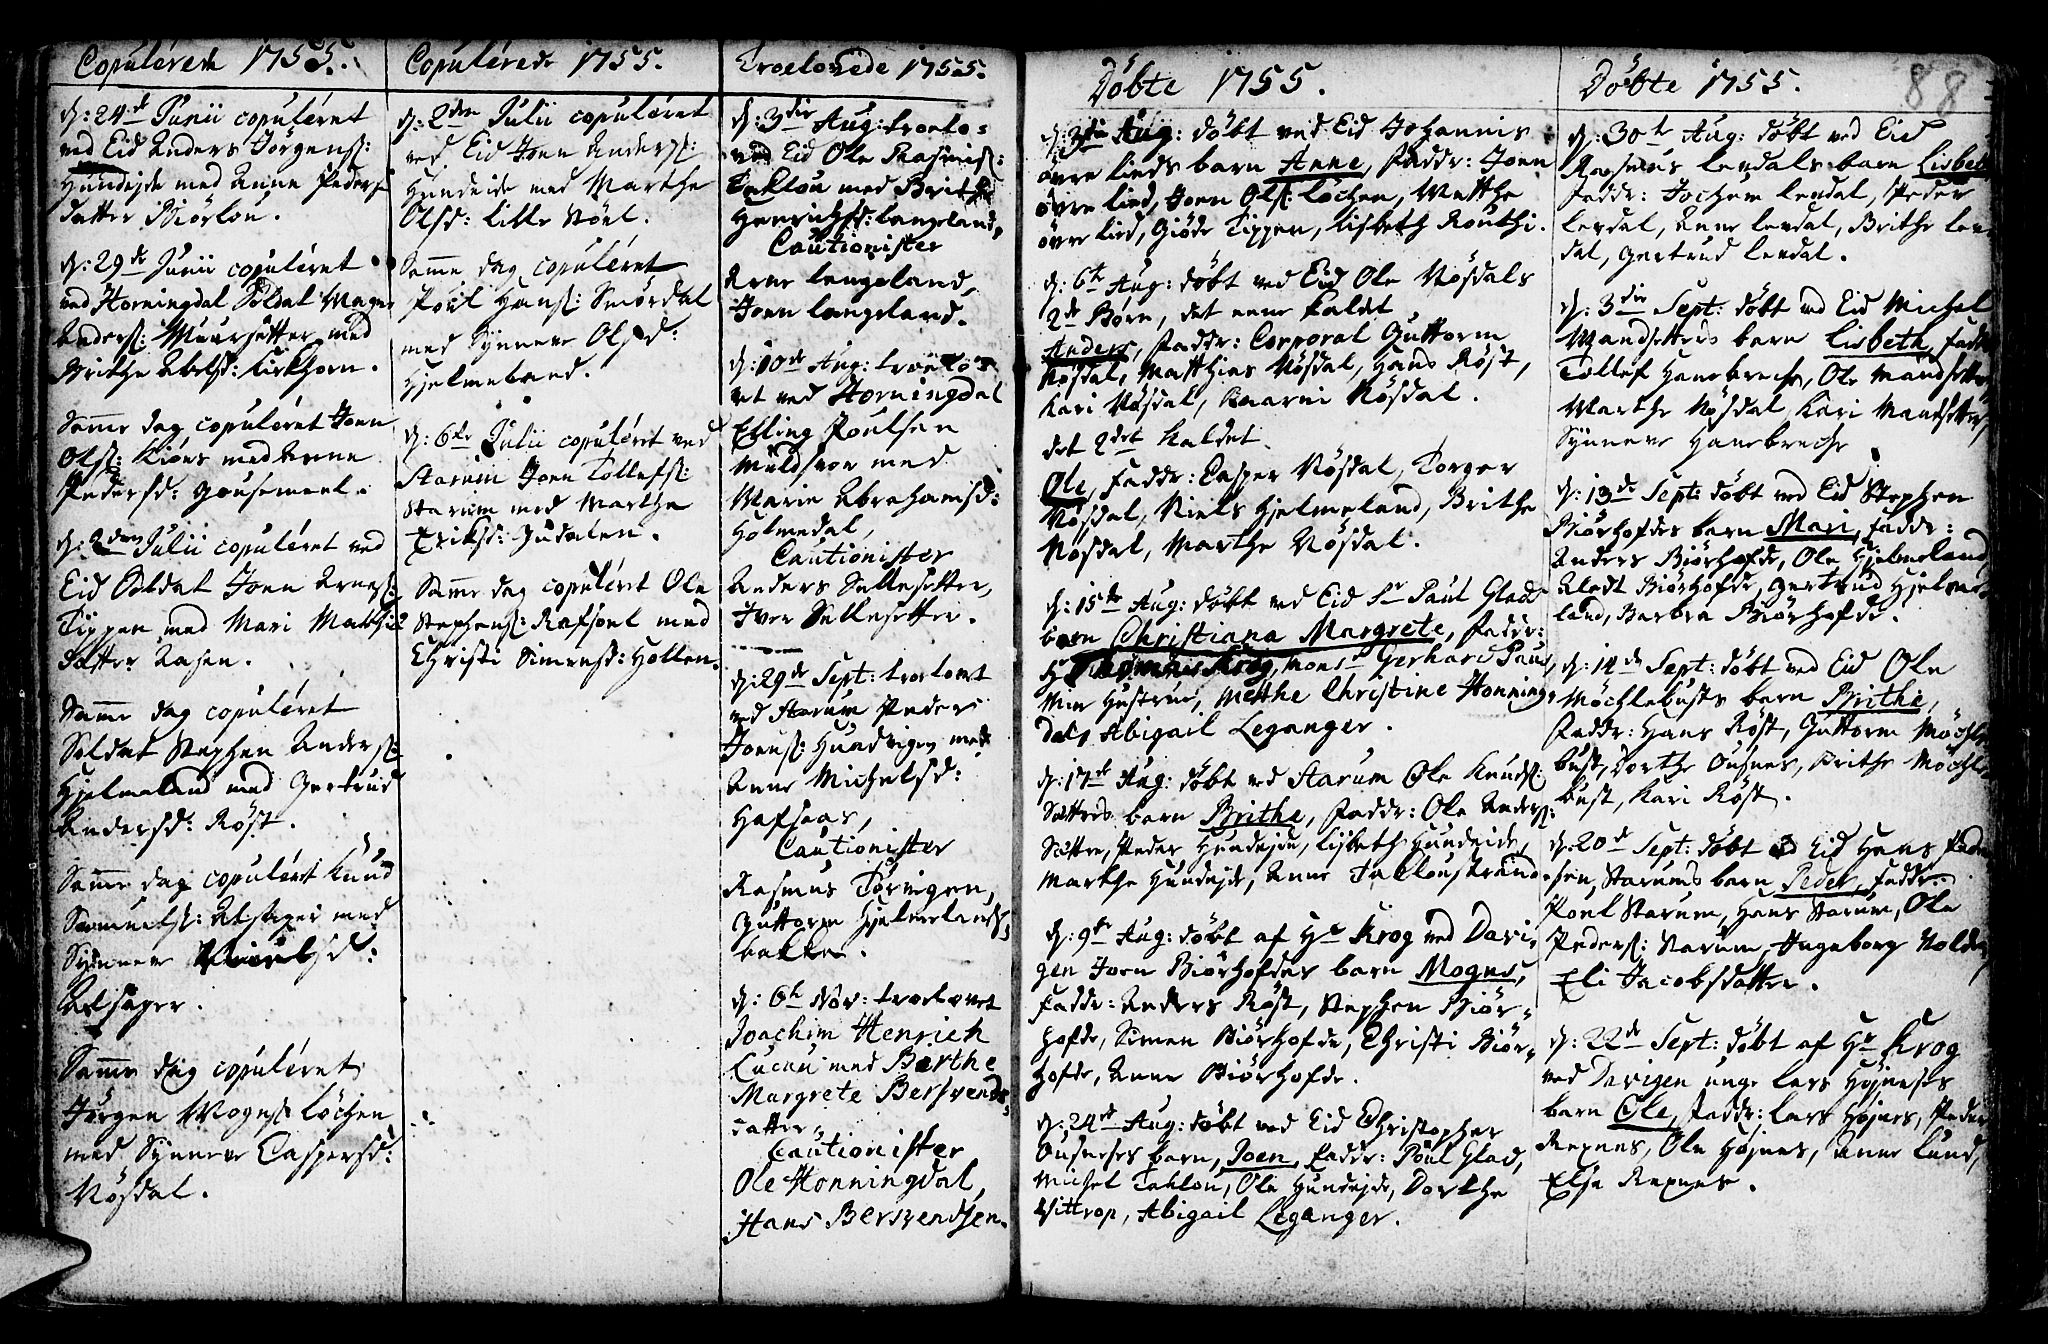 Copulérede 1755.
d: 24de Junii copuléret
ved Eid Anders Jörgens:
Hundejde med Anne Peders
datter Biörlou.
d: 29de Junii copuléret
ved Horningdal Soldat Mogns
Anders: Muursetter med
Brithe Abelsd: Kirkhorn.
Samme dag copuléret Joen
Ols: Kiöns med Anne
Pedersd: Gousemeel.
d: 2den Julii copuléret ved
Eid Soldat Joen Arnes:
Tippen med Mari Matthis
datter Aasen.
Samme dag copuléret
Soldat Stephen Anders:
Hjelmeland med Gertrud
Andersd: Röst.
Samme dag copuléret Knud
Samuels: Alsager med
Synneve
Alsager.
Samme dag copuléret
Jörgen Mogns: Löchen
med Synneve Caspersd:
Nösdal.
Copulérede 1755.
d: 2den Julii copuléret
ved Eid Joen Anders:
Hundeide med Marthe
Olsd: lille Nöel.
Samme dag copuléret
Poul Hans: Smördal
med Synneve Olsd:
Hjelmeland.
d: 6te Julii copuléret ved
Starum Joen Tollefs:
Starum med Marthe
Eriksd: Hudalen.
Samme dag copuléret Ole
Stephens: Rafsoel med
Christi Simensd: Hollen.
Troelovede 1755.
d: 3die Aug: troelo-
ved Eid Ole Rasmus:
Taklou med Brithe
Henrichsd: Langeland,
Cautionister
Arne Langeland,
Joen Langeland.
d: 10de Aug: troelo-
vet ved Horningdal
Elling Poulsen
Muldsvor med
Marie Abrahamsd:
Holmedal,
Cautionister
Anders Sellesetter,
Iver Sellesetter.
d: 29de Sept: troelovet
ved Starum Peder
Joens: Hundvigen med
Anne Michelsd:
Hafsaas,
Cautionister
Rasmus Törvigen,
Guttorm Hjelmelands
bakken.
d: 6te Nov: troelovet
Joachim Henrich
Lucuu med Berthe
Margrete Bersvends
datter,
Cautionister
Ole Honningdal,
Hans Bersvendsen.
Döbte 1755.
d: 3die Aug: döbt ved Eid Johannis
övre lieds barn Anne, Faddr: Joen
övre lied, Joen Ols: Löchen, Matthe
övre lied, Giöde Tippen, Lisbeth Routhi.
d: 6te Aug: döbt ved Eid Ole Nösdals
2de Börn, det eene kaldet
Anders, Faddr: Corporal Guttorm
Nösdal, Matthias Nösdal, Hans Röst,
Kari Nösdal, Karni Nösdal.
det 2det kaldet
Ole, Faddr: Casper Nösdal, Torger
Nösdal, Niels Hjelmeland, Brithe
Nösdal, Marthe Nösdal.
d: 15de Aug: döbt ved Eid Sr Paul Glads
barn Christiana Margrete, Faddr:
Hr Krog, Mons: Gerhard Paus,
Min Hustrue, Mætthe Christine Honning-
dal, Abigail Leganger.
d: 17de Aug: döbt ved Starum Ole Knuds:
Sættres barn Brithe, Faddr: Ole Anders:
Sættre, Peder Hundejde, Lisbeth Hundeide,
Marthe Hundejde, Anne Takloustrand.
d: 9de Aug: döbt af Hr Krog ved Davi-
gen Joen Biörhofdes barn Mogns,
Faddr: Anders Röst, Stephen Biör-
hofde, Simen Biörhofde, Christi Biör-
hofde, Anne Biörhofde.
d: 24de Aug: döbt ved Eid Christopher
Ousneses barn, Joen, Faddr: Poul Glad,
Michel Taklou, Ole Hundejde, Dorthe
Vittrop, Abigail Leganger.
Döbte 1755.
88
d: 30te Aug: döbt ved Eid
Rasmus Levdals barn Lisbeth
Faddr: Jochem Levdal, Peder
Levdal, Anne Levdal, Brithe Lev-
dal, Gertrud Levdal.
d: 3die Sept: döbt ved Eid Michel
Mandsetters barn Lisbeth, Faddr
Tollef Hanebreche, Ole Mandsetter,
Marthe Nösdal, Kari Mandsetter,
Synneve Hanebreche
d: 13de Sept: döbt ved Eid Stephen
Biörhofdes barn Mari, Faddr:
Anders Biörhofde, Ole Hjelmeland,
Aledt Biörhofde, Gertrud Hjelme-
land, Barbra Biörhofde.
d: 14de Sept: döbt ved Eid Ole
Möchlebusts barn Brithe,
Faddr: Hans Röst, Guttorm Möchle-
bust, Dorthe Ousnes, Brithe Möchle-
bust, Kari Röst.
d: 20de Sept: döbt ved Eid Hans Peder-
sen, Starums barn Peder, Faddr:
Poul Starum, Hans Starum, Ole
Peders: Starum, Ingeborg Nolde,
Eli Jacobsdatter.
d: 22de Sept: döbt af Hr Krog
ved Davigen unge Lars Höjneses
barn Ole, Faddr: Lars Höjnes, Peder
Rexnes, Ole Höjnes, Anne Lund,
Else Rexnes.